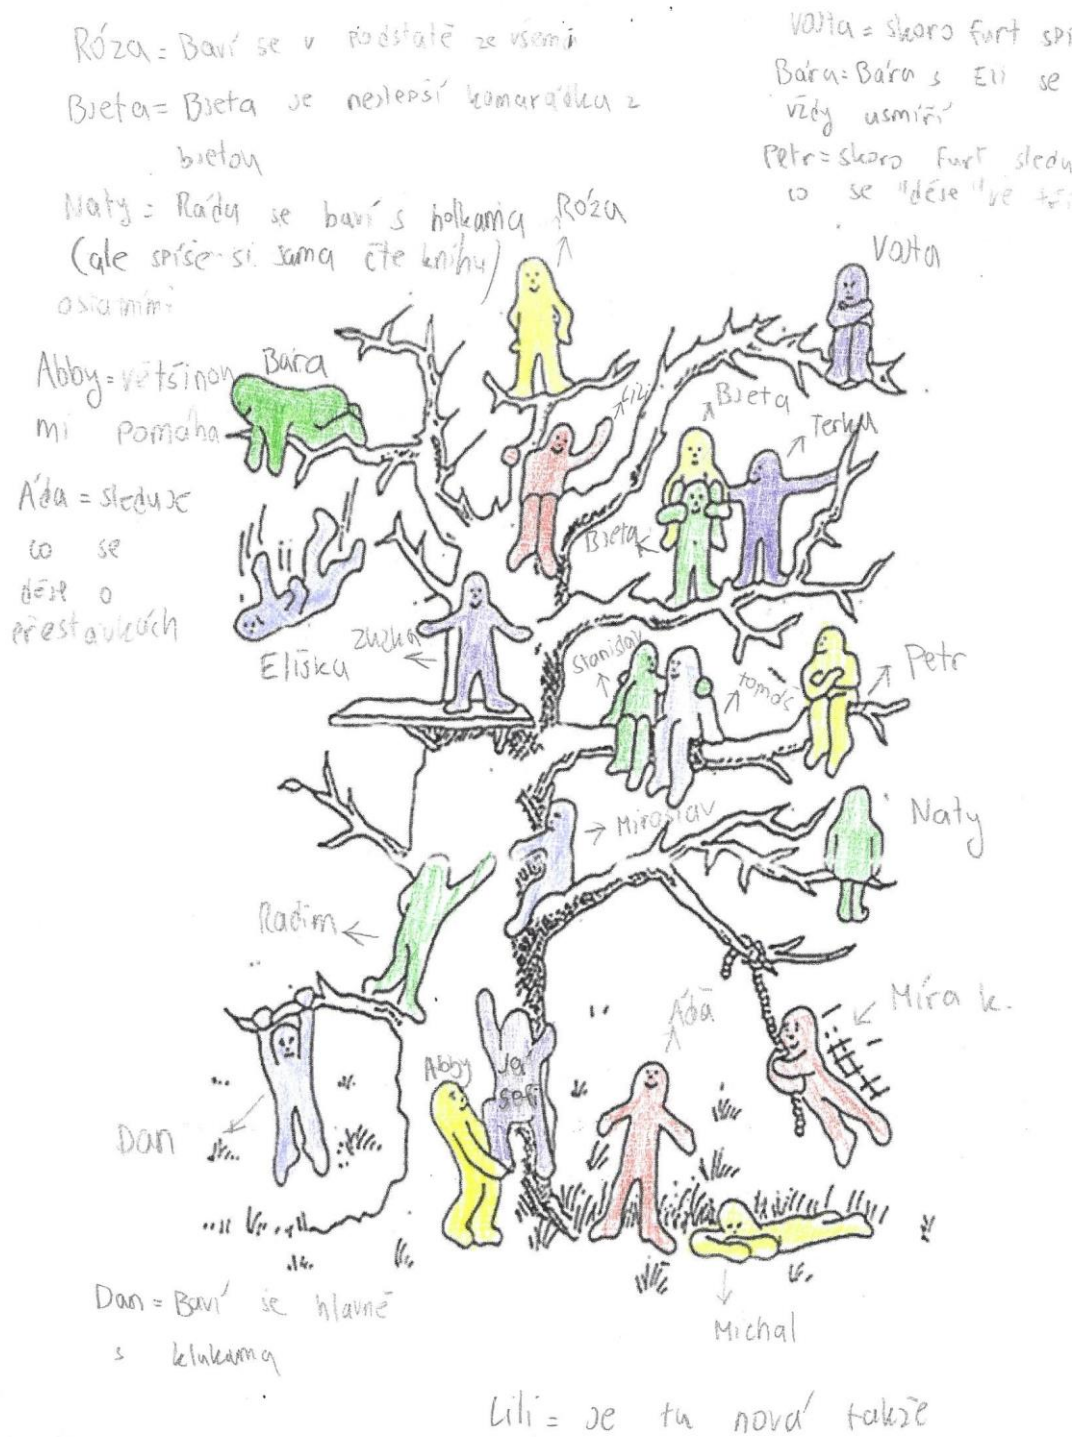 Róza = Baví se v podstatě ze všemi
Bjeta = Bjeta je nejlepší kamarádka z
bjetou
Naty = Ráda se baví s holkama
(ale spíše si sama čte knihu)
ostatními
Abby = většinou
mi pomáhá
Áďa = sleduje
co se
děje o
přestávkách
Vojta = skoro furt spí
Bára = Bára s Eli se
vždy usmíří
Petr = skoro furt sledu
co se "děje" ve
Róza
Vojta
Bára
Lili
Bjeta
Terka
Bjeta
Eliška
Zuzka
Stanislav
tomáš
Petr
Miroslav
Naty
Radim
Áďa
Míra k.
Abby
Já
sofi
Dan
Michal
Dan = Baví se hlavně
s klukama
Lili = je tu nová takže